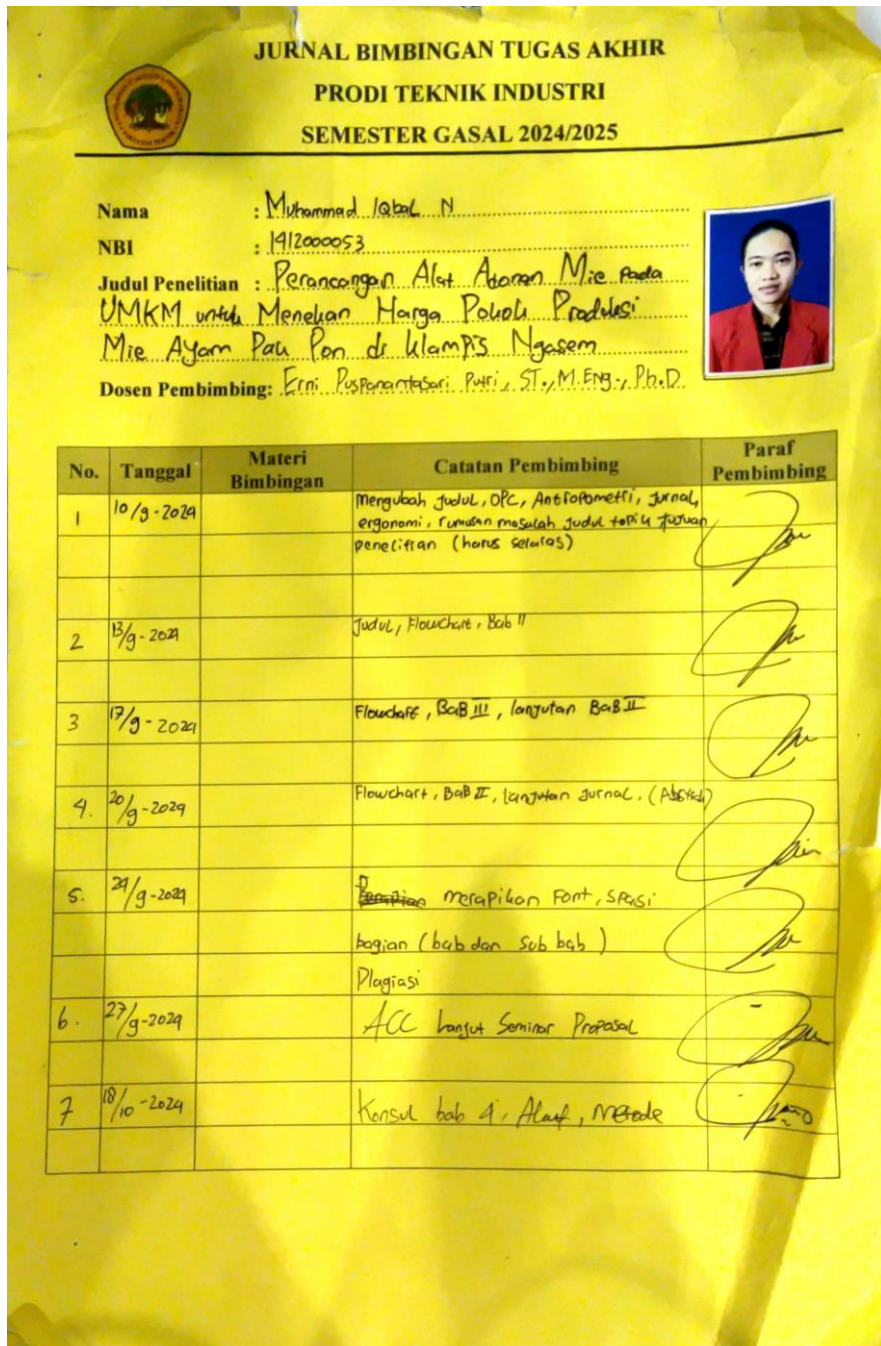 JURNAL BIMBINGAN TUGAS AKHIR
PRODI TEKNIK INDUSTRI
SEMESTER GASAL 2024/2025
Nama : Muhammad Iqbal N
NBI : 1912000053
Judul Penelitian : Perancangan Alat Adonan Mie Pada
UMKM untuk Menekan Harga Pokok Produksi
Mie Ayam Pak Pon di Klampis Ngasem
Dosen Pembimbing: Erni Puspanantasari Putri, ST., M.Eng., Ph.D.
No. Tanggal Materi Bimbingan Catatan Pembimbing Paraf Pembimbing
1 10/9-2024 Mengubah Judul, OPC, Antropometri, Jurnal,
ergonomi, rumusan masalah judul topik tujuan
penelitian (harus selaras)
2 13/9-2024 Judul, Flowchart, Bab II
3 17/9-2024 Flowchart, BaB III, lanjutan BaB II
4. 20/9-2024 Flowchart, BaB II, lanjutan Jurnal,
5. 24/9-2024 merapikan Font, spasi
bagian (bab dan sub bab)
Plagiasi
6. 27/9-2024 ACC Lanjut Seminar Proposal
7 18/10-2024 Konsul bab 4, Alat, Metode